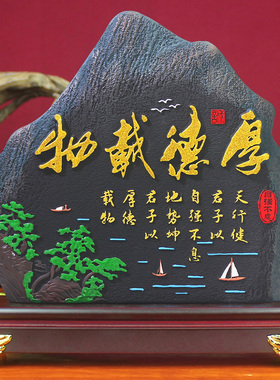 厚德載物
天行健
君子以
自强不息
地势坤
君子以
厚德
載物